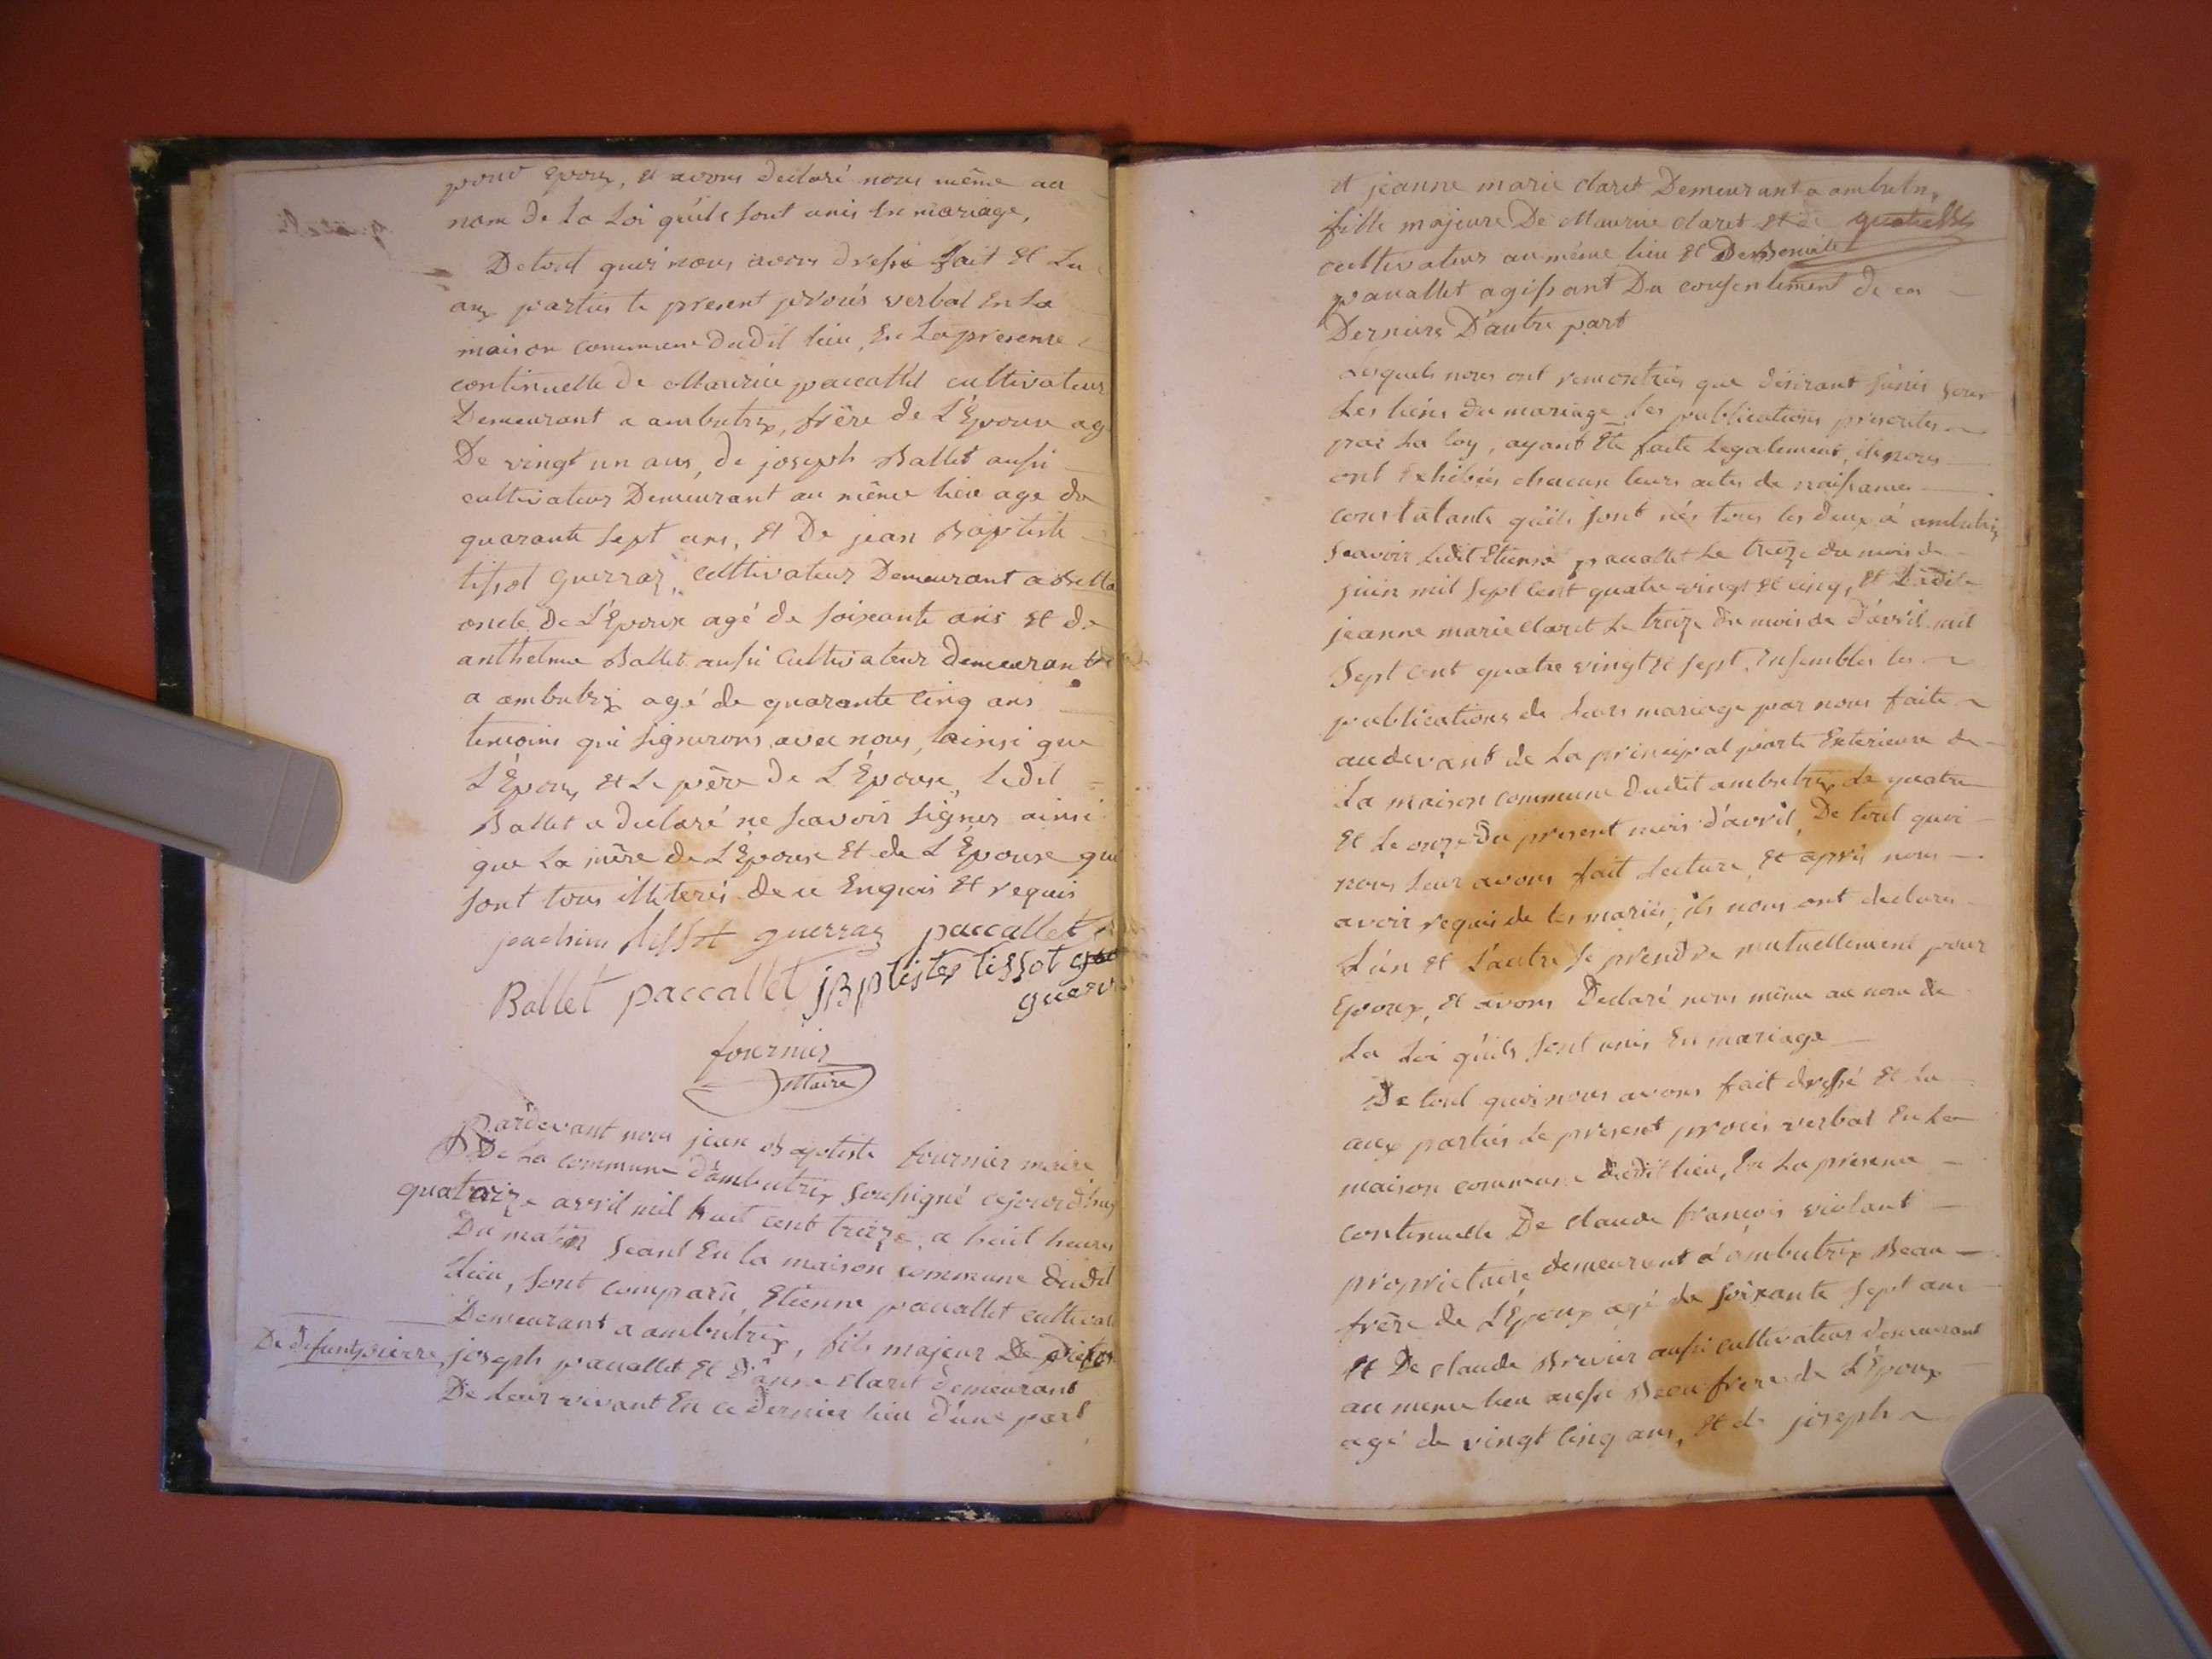 pour Epoux, et avons declaré nous même au
nom de la Loi qu'ils sont unis En mariage,
De tout quoi nous avons dressé fait et Lu
aux parties le present procés verbal En La
maison commune dudit lieu, En La presence
continuelle de Maurice paccallet cultivateur
Demeurant a ambutrix, frère de L'Epouse ag
De vingt un ans, de joseph Ballet aussi
cultivateur Demeurant au même lieu age de
quarante sept ans, et De jean Baptiste
tissot guerraz, cultivateur Demeurant a
oncle De L'Epoux agé de soixante ans et de
anthelme Ballet aussi Cultivateur demeurant
a ambutrix agé de quarante cinq ans
temoins qui signerons avec nous, ainsi que
L'Epoux et Le père de L'Epouse, ledit
Ballet a declaré ne scavoir signer ainsi
que La mère de L'Epouse et de L'Epouse qui
sont tous illiterés de ce Enquis et requis
joachim tissot guerraz paccallet
Ballet paccallet jBptiste tissot
guerr
fournier
Maire
Pardevant nous jean Baptiste fournier maire
De La commune d'ambutrix soussigné cejourd'huy
quatorze avril mil huit cent treize, a huit heures
Du matin seant En la maison commune dudit
Lieu, sont comparu Etienne paccallet cultivat
Demeurant a ambutrix, fils majeur De
De defunt pierre joseph paccallet et d'anne claret demeurant
De Leur vivant En ce dernier lieu d'une part
et jeanne marie claret Demeurant a ambutr
fille majeure De Maurice claret et de
cultivateur au même lieu et De Benoite
paccallet agissant Du consentement de ces
Derniers D'autre part
Lesquels nous ont remontrés que désirant s'unir sous
Les liens du mariage les publications prescrites
par La loy, ayant Eté faite Legalement, ils nous
ont Exhibés chacun leurs actes de naissances
constatants qu'ils sont nés tous les deux à ambutrix
scavoir ledit Etienne paccallet Le treize du mois de
juin mil sept cent quatre vingt et cinq, et Ladite
jeanne marie claret Le treize du mois de d'avril mil
Sept cent quatre vingt et sept. Ensembles les
publications de Leurs mariage par nous faite
audevant de La principal porte Exterieure de
La maison commune dudit ambutrix Le quatre
et Le onze Du present mois d'avril, De tout quoi
nous Leur avons fait Lecture, et après nous
avoir requis de les mariés, ils nous ont declarés
L'un et L'autre se prendre mutuellement pour
Epoux, et avons Declaré nous même au nom de
La Loi qu'ils sont unis En mariage
De tout quoi nous avons fait dressé et Lu
aux parties Le present procés verbal En La
maison commune dudit lieu, En La presence
continuelle De claude françois violant
proprietaire demeurant à ambutrix Beau
frère de L'Epoux agé de soixante sept ans
et De claude Brevier aussi cultivateur demeurant
au même lieu aussi Beau frere de L'Epoux
agé de vingt cinq ans, et de joseph